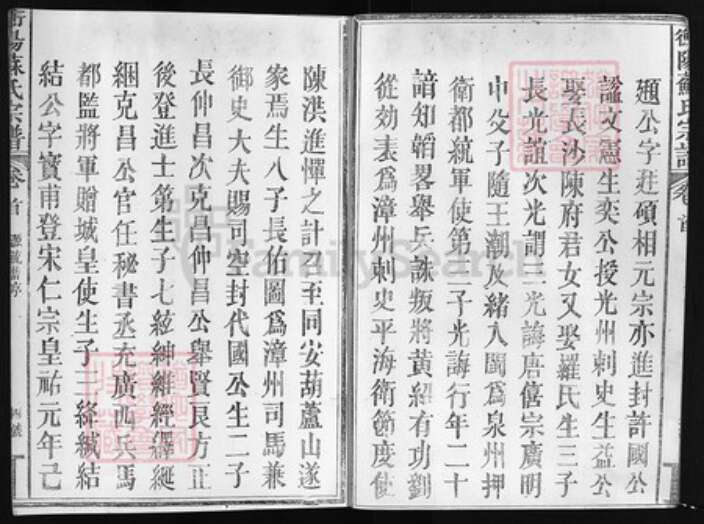 衡陽蘇氏宗譜
卷首
頲公字廷碩相元宗亦進封許國公
謐文憲生奕公授光州刺史生益公
娶長沙陳府君女又娶羅氏生三子
長光誼次光謂三光誨唐僖宗廣明
中父子隨王潮及緒入閩爲泉州押
衛都統軍使第三子光誨行年二十
諳知韜畧舉兵誅叛將黃紹有功劉
從効表爲漳州刺史平海衛節度使
陳洪進憚之計刃至同安葫蘆山遂
家焉生八子長佑圖爲漳州司馬兼
御史大夫賜司空封代國公生二子
長仲昌次克昌仲昌公舉賢良方正
後登進士第生子七紘紳維經繹綖
綑克昌公官任秘書丞充廣西兵馬
都監將軍贈城皇使生子三絳緘結
結公字寶甫登宋仁宗皇祐元年己
衡陽蘇氏宗譜
卷首
四號
FamilySearch